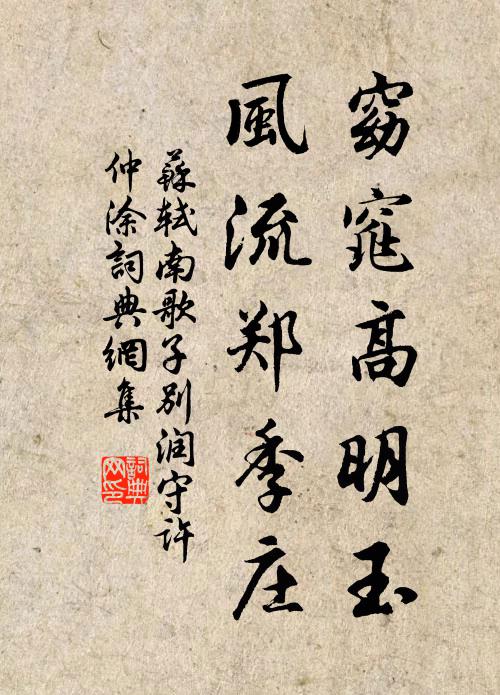 窈窕高明玉
風流郑季庄
蘇轼南歌子别润守许
仲涂詞典網集
詞典网印